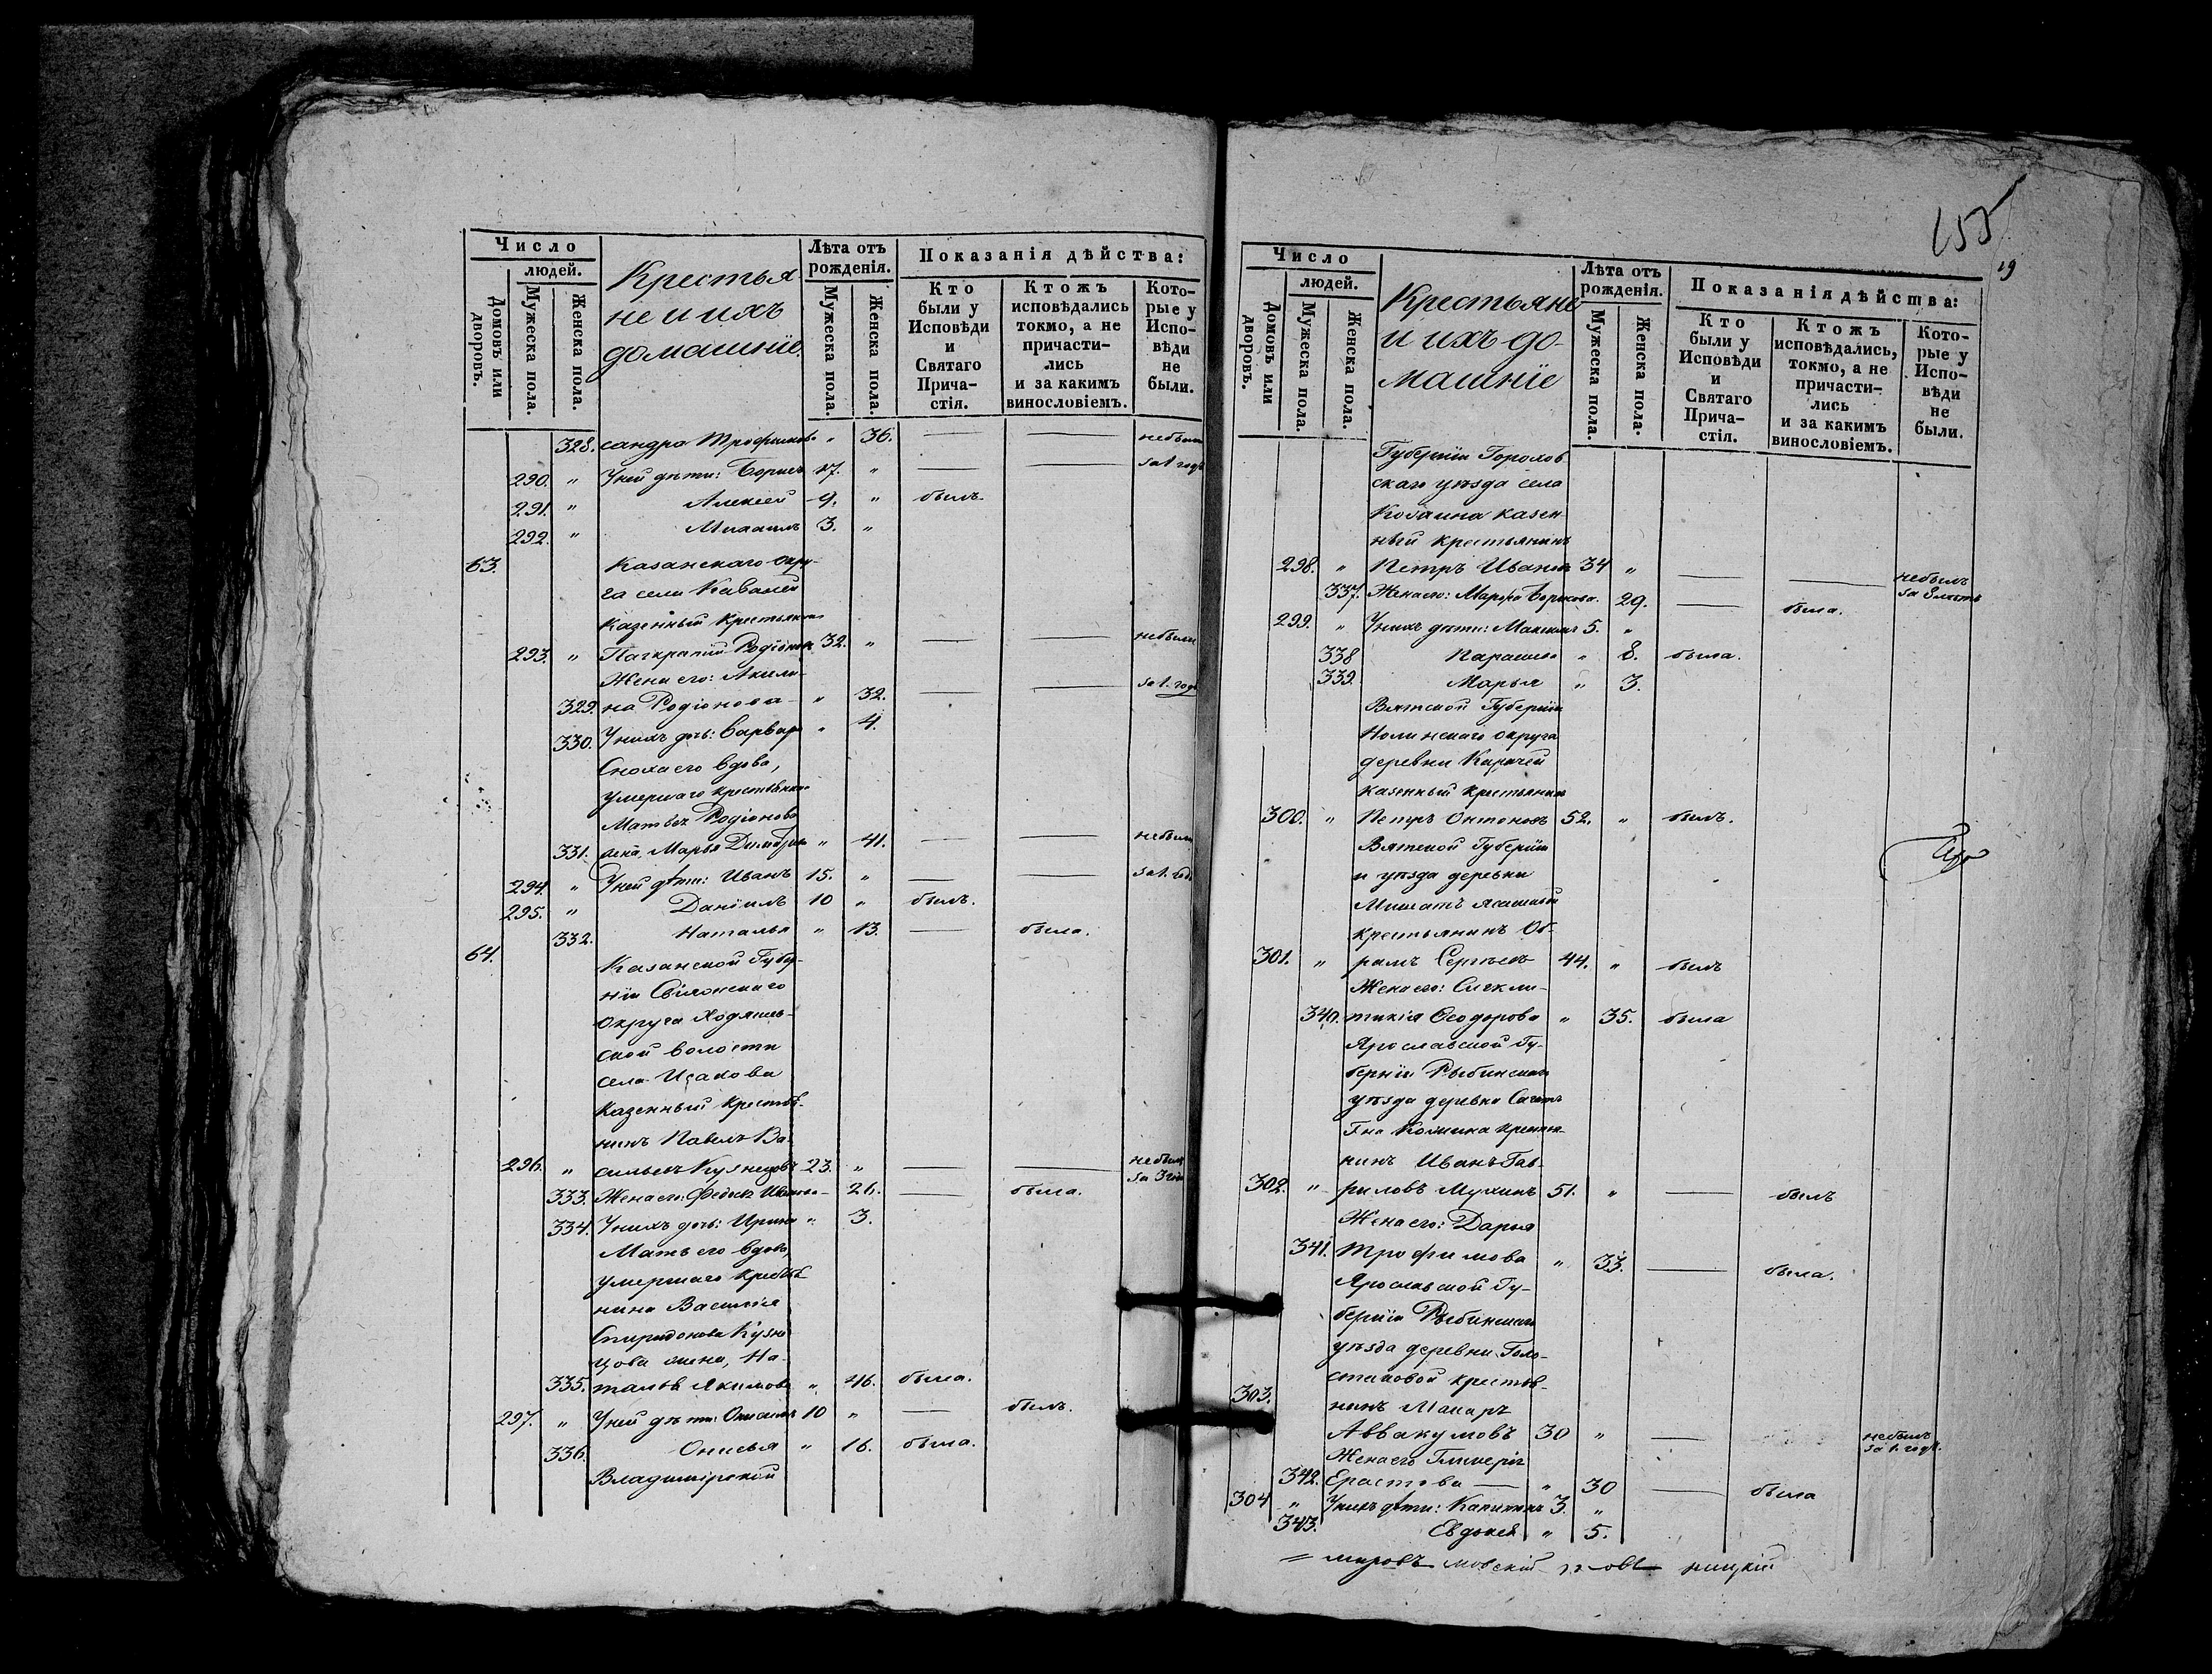 Число
людей.
Домовъ или дворовъ.
Мужеска пола.
Женска пола.
Крестья-
не и ихъ
домашніе.
Лѣта отъ рожденія.
Мужеска пола.
Женска пола.
Показанія дѣйства:
Кто были у Исповѣди и Святаго Прича-стія.
Ктожъ исповѣдались токмо, а не причасти-лись и за какимъ винословіемъ.
Кото-рые у Испо-вѣди не были.
328. сандра Трофимова " 36. — — небыла
290. " У ней дѣти: Борисъ 17. " — — за 1 годъ
291. " Алексей 9. " былъ
292. " Михаилъ 3. "
63. Казанскаго окру-
га села Кабаней
казенный крестьянинъ
293. " Панкратий Родіоновъ 32. " — — небыли
Жена его: Акили-
329. на Родіонова " 32. — — за 1. годъ
330. У нихъ дочь: Варвара " 4.
Сноха его вдова,
умершаго крестьянина
Матвея Родіонова
331. жена, Марья Димитріева " 41. — — небыли
294. " У ней дѣти: Иванъ 15. " — — за 1. годъ
295. " Даніилъ 10 " былъ.
332. Наталья " 13. — была.
64. Казанской Губер-
ніи Свіяжскаго
округа Ходяшев-
ской волости
села Исакова
казенный крестья-
нинъ Павелъ Ва-
296. " сильевъ Кузнецовъ 23. " — — небылъ за 3 года
333. Жена его: Федосья Иванова — 26. — была.
334. У нихъ дочь: Ирина " 3.
Мать его вдова,
умершаго крестья-
нина Василія
Спиридонова Кузне-
цова жена, На-
335. талья Якимова " 46. была.
297. " У ней дѣти: Онисимъ 10 " — былъ.
336. Онисья " 16. была.
Владимірской
155
19
Число
людей.
Домовъ или дворовъ.
Мужеска пола.
Женска пола.
Крестьяне
и ихъ до-
машніе
Лѣта отъ рожденія.
Мужеска пола.
Женска пола.
Показанія дѣйства:
Кто были у Исповѣди и Святаго Прича-стія.
Ктожъ исповѣдались, токмо, а не причасти-лись и за какимъ винословіемъ.
Кото-рые у Испо-вѣди не были.
Губерніи Горохов-
скаго уѣзда села
казен-
ный крестьянинъ
298. " Петръ Ивановъ 34 " — — небылъ за 3 лѣтъ
337. Жена его: Марфа Борисова. 29. — была.
299. " У нихъ дѣти: Максимъ 5. "
338 Парасковья " 8. была.
339. Марья " 3.
Вятской Губерніи
Нолинскаго округа
деревни Карачей
казенный крестьянинъ
300. " Петръ Онтоновъ 52. " былъ.
Вятской Губерніи
и уѣзда деревни
ясашный
крестьянинъ Об-
301. " рамъ Сергѣевъ 44. " былъ
Жена его: Сикли-
340. тикія Ѳеодорова " 35. была
Ярославской Гу-
берніи Рыбинскаго
уѣзда деревни
крестья-
нинъ Иванъ Гав-
302. " риловъ Мухинъ 51. " — былъ
Жена его: Дарья
341. Трофимова " 33. — была.
Ярославской Гу-
берніи Рыбинскаго
уѣзда деревни Голо-
стиновой крестья-
303. нинъ Макаръ
Аввакумовъ 30 " — небылъ за 1. годъ.
Жена его Гликерія
342. Ерастова — " 30 — была
304 " У нихъ дѣти: Капитонъ 3. "
343. Евдокея " 5.